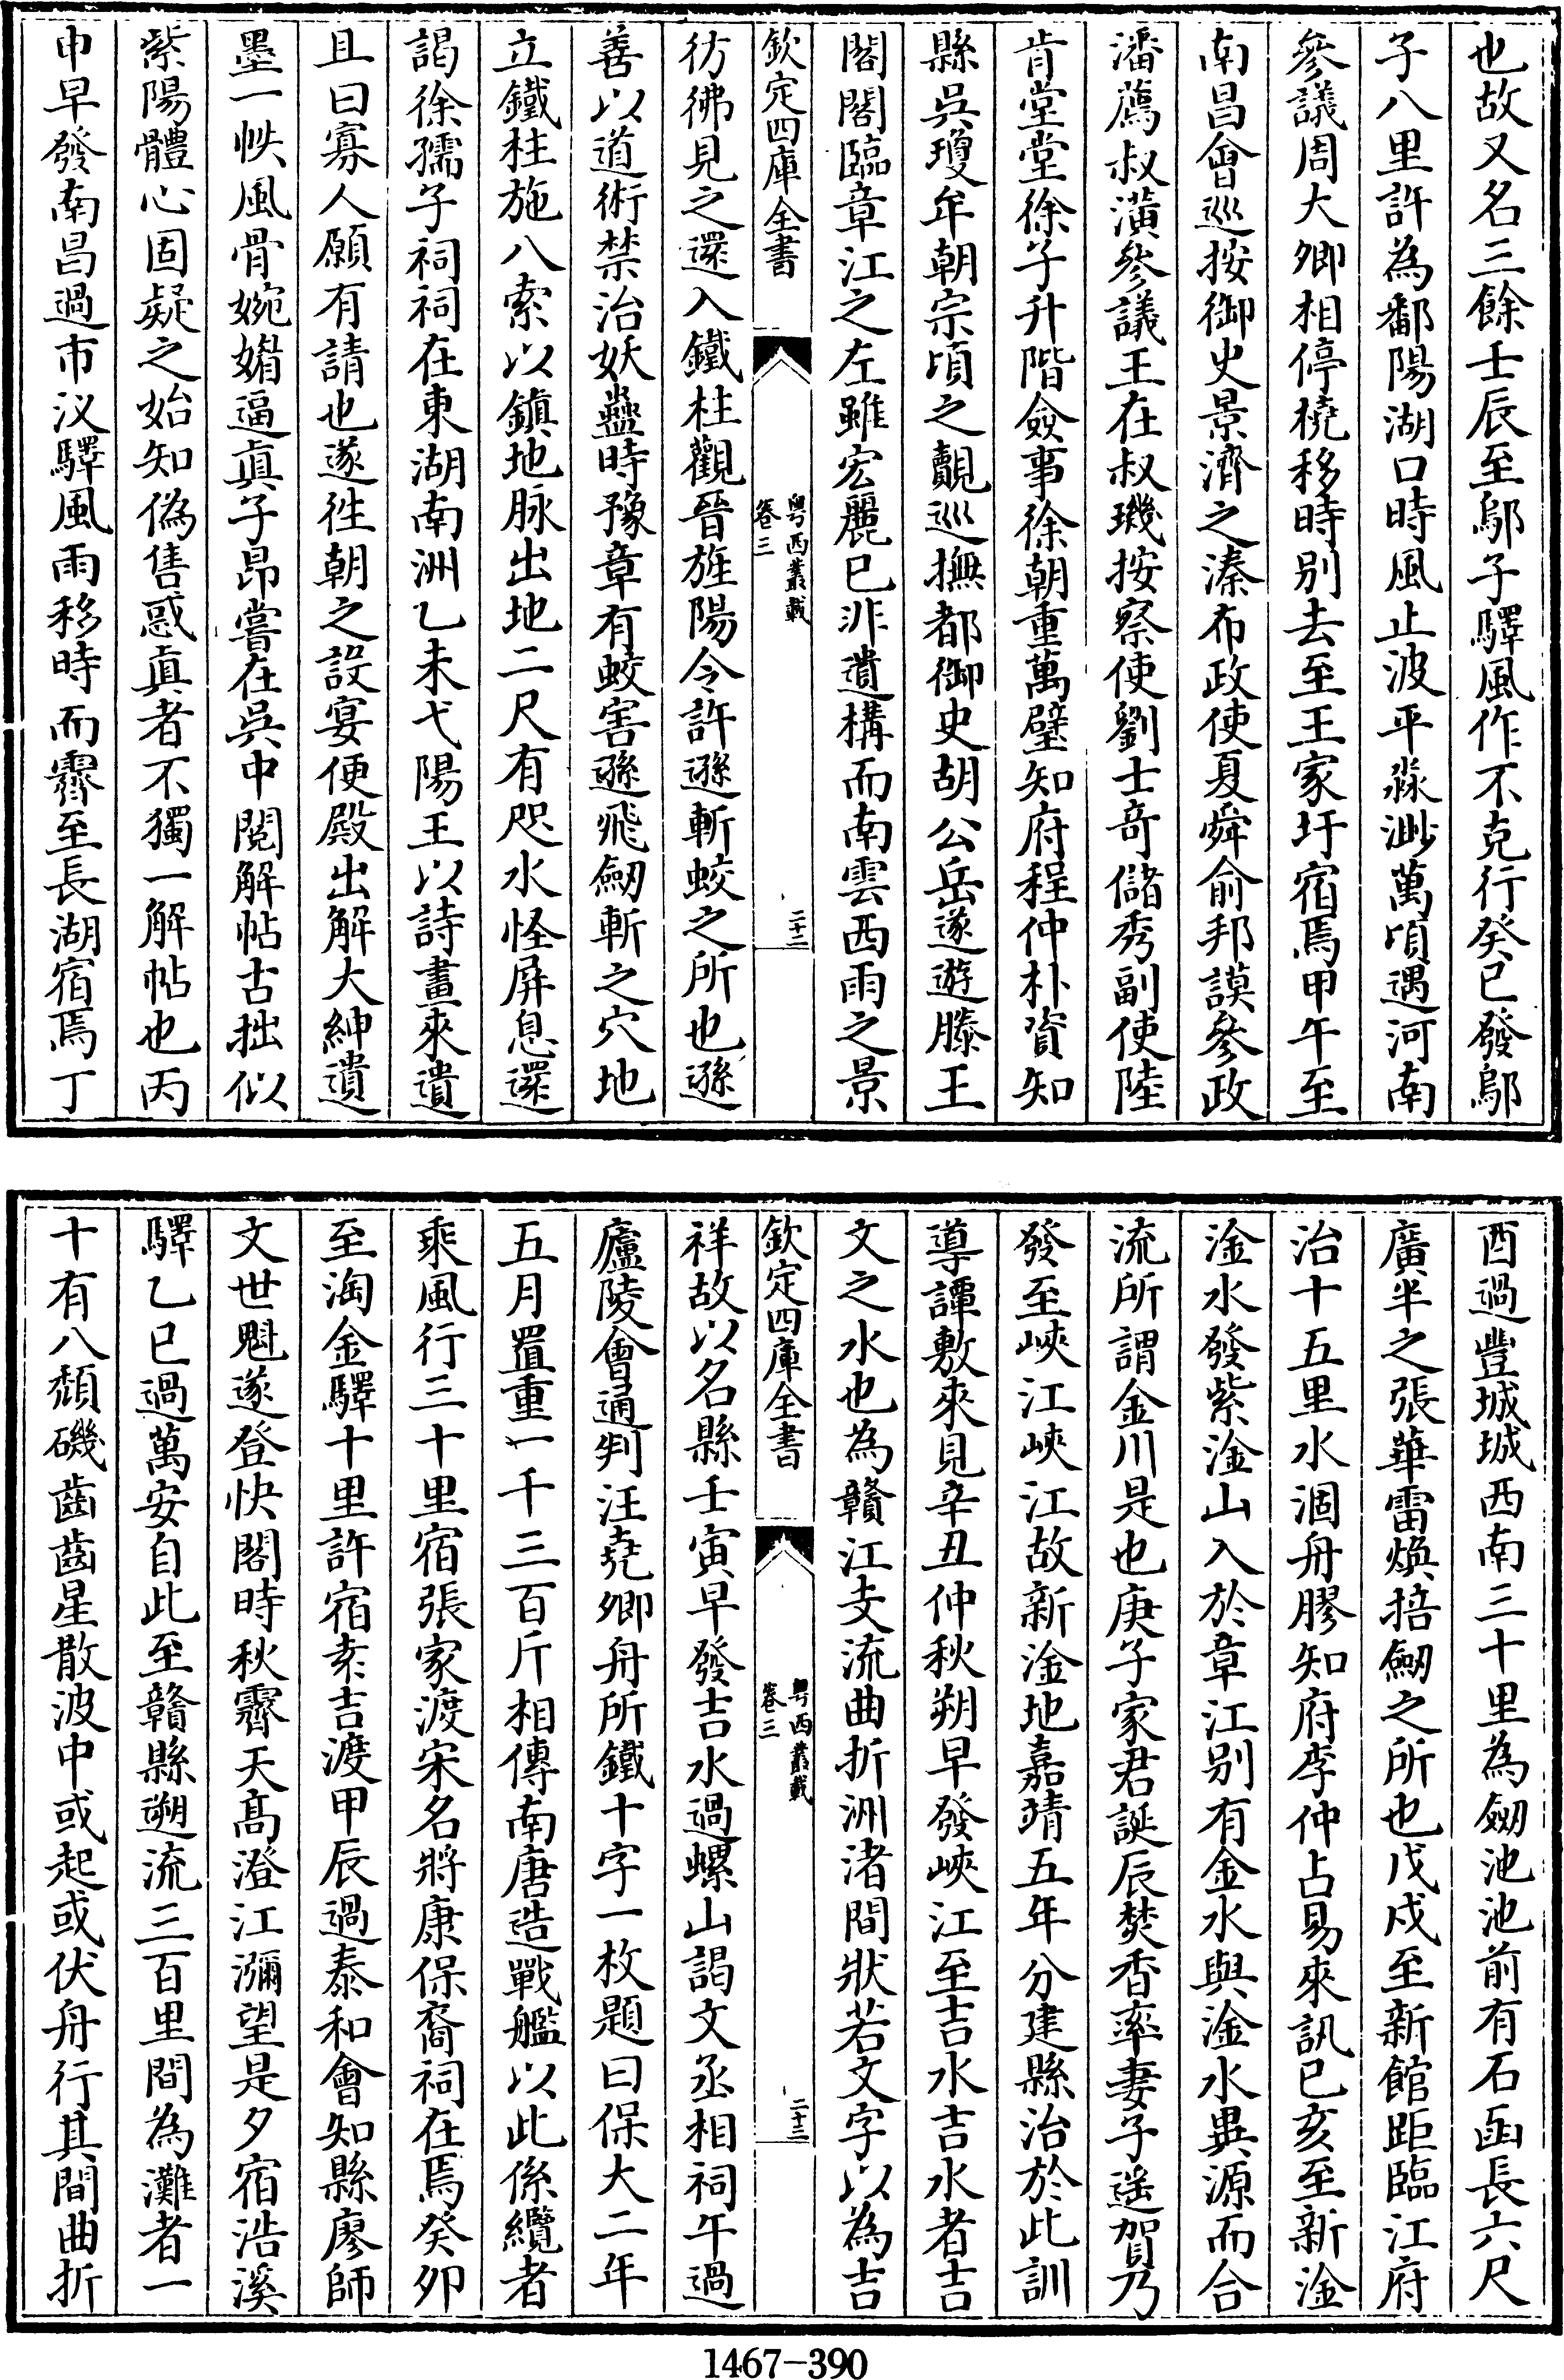 也故又名三餘壬辰至鄔子驛風作不克行癸巳發鄔
子八里許為鄱陽湖口時風止波平淼渺萬頃遇河南
參議周大卿相停橈移時别去至王家圩宿焉甲午至
南昌會巡按御史景濟之溱布政使夏舜俞邦謨參政
潘薦叔潢參議王在叔璣按察使劉士竒儲秀副使陸
肯堂堂徐子升階僉事徐朝重萬璧知府程仲朴資知
縣吳瓊牟朝宗頃之覿巡撫都御史胡公岳遂遊滕王
閣閣臨章江之左雖宏麗已非遺構而南雲西雨之景
欽定四庫全書
粤西叢載
卷三
二十二
彷彿見之還入鐵柱觀晉旌陽令許遜斬蛟之所也遜
善以道術禁治妖蠱時豫章有蛟害遜飛劒斬之穴地
立鐵柱施八索以鎮地脉出地二尺有咫水怪屏息還
謁徐孺子祠祠在東湖南洲乙未弋陽王以詩畫來遺
且曰寡人願有請也遂徃朝之設宴便殿出解大紳遺
墨一帙風骨婉媚逼真子昂嘗在吳中閲解帖古拙似
紫陽體心固疑之始知偽售惑真者不獨一解帖也丙
申早發南昌過市汊驛風雨移時而霽至長湖宿焉丁
酉過豐城城西南三十里為劒池池前有石函長六尺
廣半之張華雷煥掊劒之所也戊戌至新館距臨江府
治十五里水涸舟膠知府李仲占易來訊已亥至新淦
淦水發紫淦山入於章江别有金水與淦水異源而合
流所謂金川是也庚子家君誕辰焚香率妻子遙賀乃
發至峽江峽江故新淦地嘉靖五年分建縣治於此訓
導譚敷來見辛丑仲秋朔早發峽江至吉水吉水者吉
文之水也為贛江支流曲折洲渚間狀若文字以為吉
欽定四庫全書
粤西叢載
卷三
二十三
祥故以名縣壬寅早發吉水過螺山謁文丞相祠午過
廬陵會通判汪堯卿舟所鐵十字一枚題曰保大二年
五月置重一千三百斤相傳南唐造戰艦以此係纜者
乘風行三十里宿張家渡宋名將康保裔祠在焉癸卯
至淘金驛十里許宿索吉渡甲辰過泰和會知縣廖師
文世魁遂登快閣時秋霽天髙澄江瀰望是夕宿浩溪
驛乙巳過萬安自此至贛縣遡流三百里間為灘者一
十有八頽磯齒齒星散波中或起或伏舟行其間曲折
1467-390